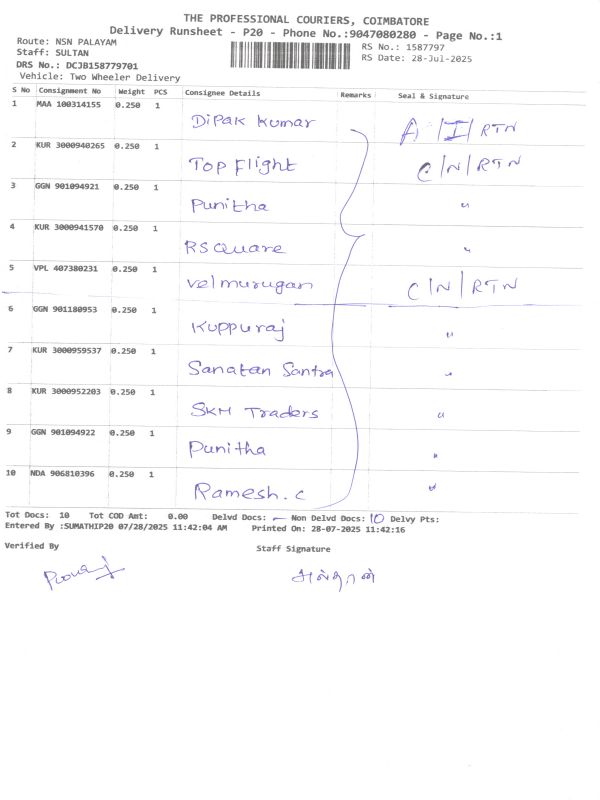 THE PROFESSIONAL COURIERS, COIMBATORE
Delivery Runsheet - P20 - Phone No.:9047080280 - Page No.:1
Route: NSN PALAYAM
Staff: SULTAN
DRS No.: DCJB158779701
Vehicle: Two Wheeler Delivery
RS No.: 1587797
RS Date: 28-Jul-2025
S No Consignment No Weight PCS Consignee Details Remarks Seal & Signature
1 MAA 100314155 0.250 1 Dipak kumar A/I/RTN
2 KUR 3000940265 0.250 1 Top Flight C/N/RTN
3 GGN 901094921 0.250 1 Punitha "
4 KUR 3000941570 0.250 1 RSquare "
5 VPL 407380231 0.250 1 velmurugan C/N/RTN
6 GGN 901180953 0.250 1 Kuppuraj "
7 KUR 3000959537 0.250 1 Sanatan Santra "
8 KUR 3000952203 0.250 1 SKM Traders "
9 GGN 901094922 0.250 1 Punitha "
10 NDA 906810396 0.250 1 Ramesh.c "
Tot Docs: 10 Tot COD Amt: 0.00 Delvd Docs: - Non Delvd Docs: 10 Delvy Pts:
Entered By :SUMATHIP20 07/28/2025 11:42:04 AM Printed On: 28-07-2025 11:42:16
Verified By
Staff Signature
சுல்தான்